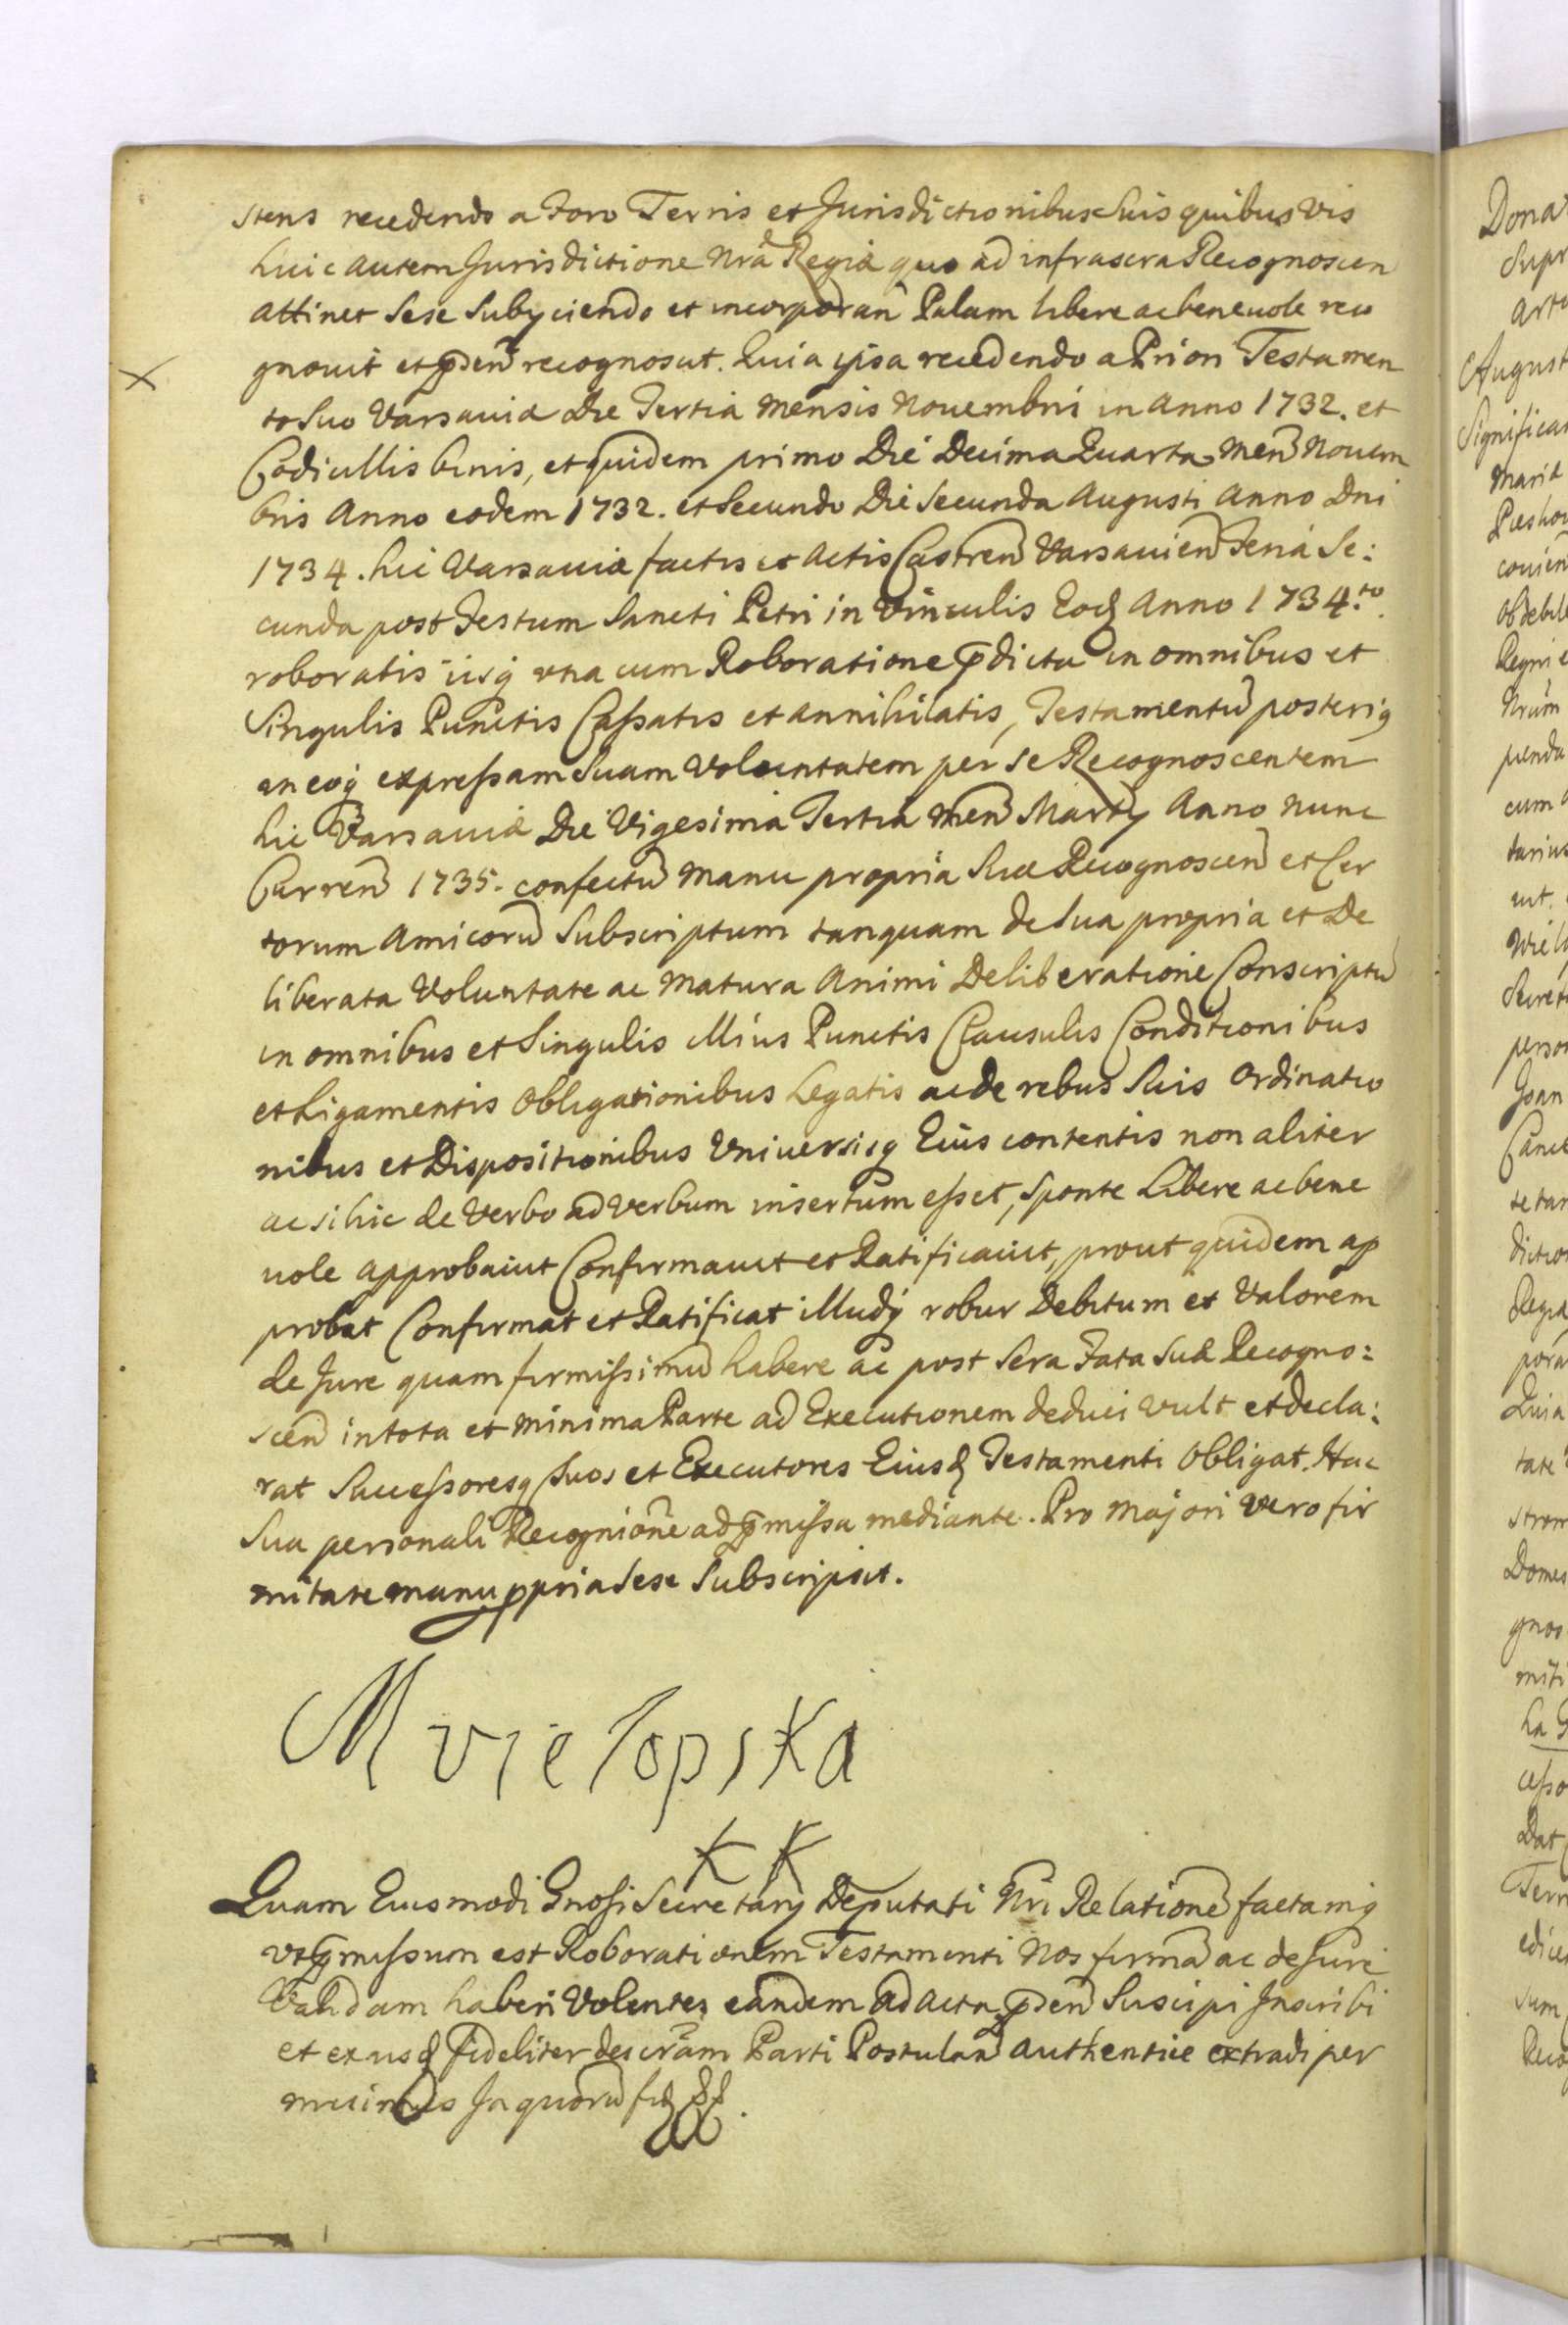 stens recedendo a Foro Terris et Jurisdictionibus Suis quibus vis
huic autem Jurisdictione Nrã Regiæ quo ad infrascra Recognoscen
attinet Sese Subyciendo et incorporan Palam libere ac beneuole reco
gnouit et pñsen recognoscit. Quia ipsa recedendo a Priori Testamen
to Suo Varsauiæ Die Tertia Mensis Nouembris in Anno 1732. et
Codicillis binis, et quidem primo Die Decima Quarta Men Nouem
bris Anno eodem 1732. et Secundo Die Secunda Augusti Anno Dni
1734. hic Varsauiæ factis et Actis Castren Varsauien Feria Se:
cunda post Festum Sancti Petri in Vinculis Eod Anno 1734.to
roboratis iisq vna cum Roboratione p̃dicta in omnibus et
Singulis Punctis Caſsatis et annihilatis, Testamentũ posterig
in eoq expreſsam Suam Voluntatem per se Recognoscentem
hic Varsauiæ Die Vigesima Tertia Men Marty Anno nunc
Curren 1735. confectũ Manu propria Suæ Recognoscen et Cer
torum Amicorũ Subscriptum tanquam de Sua propria et De
liberata Voluntate ac Matura Animi Deliberatione Conscriptũ
in omnibus et Singulis Illius Punctis Clausulis Conditionibus
et Ligamentis Obligationibus Legatis ac de rebus Suis Ordinatio
nibus et Dispositionibus Vniuersisq Eius contentis non aliter
ac si hic de Verbo ad Verbum insertum eſset, Sponte Libere ac bene
uole approbauit Confirmauit et Ratificauit, prout quidem ap
probat Confirmat et Ratificat illudq robur Debitum et Valorem
de Jure quam firmiſsimũ habere ac post Sera Fata Suæ Recogno:
scen in tota et minima Parte ad Executionem deduci vult et decla:
rat Succeſsoresq Suos et Executores Eiusd Testamenti Obligat. Hac
Sua personali Recognione ad p̃miſsa mediante. Pro Majori Vero fir
mitate manu ppria Sese Subscripsit.
M vielopska
K K
Quam Eiusmodi Gnosi Secretary Deputati Nri Relatione factamq
vt p̃miſsum est Roborationem Testamenti Nos firmã ac de Jure
Validam haberi Volentes eandem ad Acta pñsen Suscipi Inscribi
et ex iisd fideliter descrã̃m Parti Postulan authentice extradi per
misimus In quorũ fid